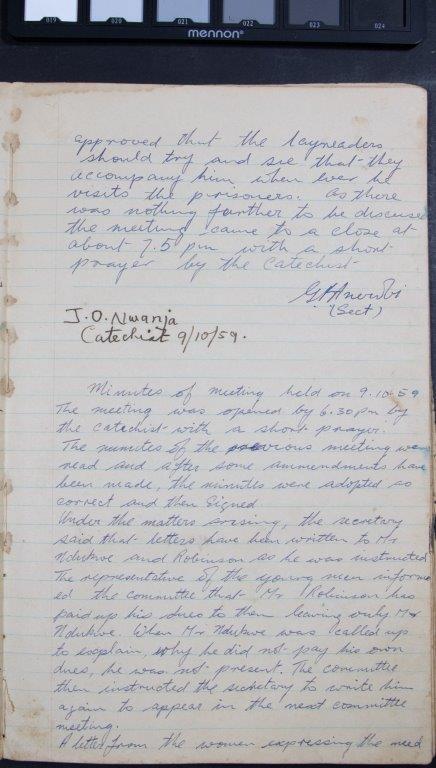 019 020 021 022 023 024
mennon®
approved that the layreaders
should try and see that they
accompany him when ever he
visits the prisoners. As there
was nothing further to be discussed
the meeting came to a close at
about 7.5 pm with a short
prayer by the Catechist
(Sect)
J.O. Nwanja
Catechist 9/10/59.
Minutes of meeting held on 9.10.59
The meeting was opened by 6.30 pm by
the catechist with a short prayer.
The minutes of the previous meeting were
read and after some ammendments have
been made, the minutes were adopted as
correct and then signed
Under the matters arising, the secretary
said that letters have been written to Mr
Ndukwe and Robinson as he was instructed
The representative of the young men inform
ed the committee that Mr Robinson has
paid up his dues to them leaving only Mr
Ndukwe. When Mr Ndukwe was called up
to explain, why he did not pay his own
dues, he was not present. The committee
then instructed the secretary to write him
again to appear in the next committee
meeting.
A letter from the women expressing the need